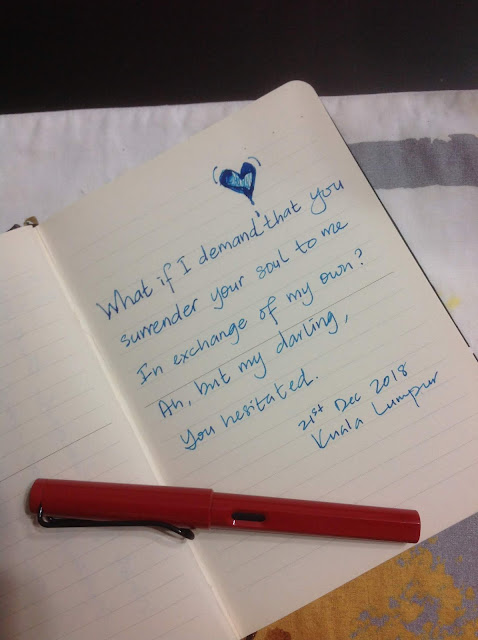 What if I demand that you
surrender your soul to me
In exchange of my own?
Ah, but my darling,
You hesitated.
21st Dec 2018
Kuala Lumpur